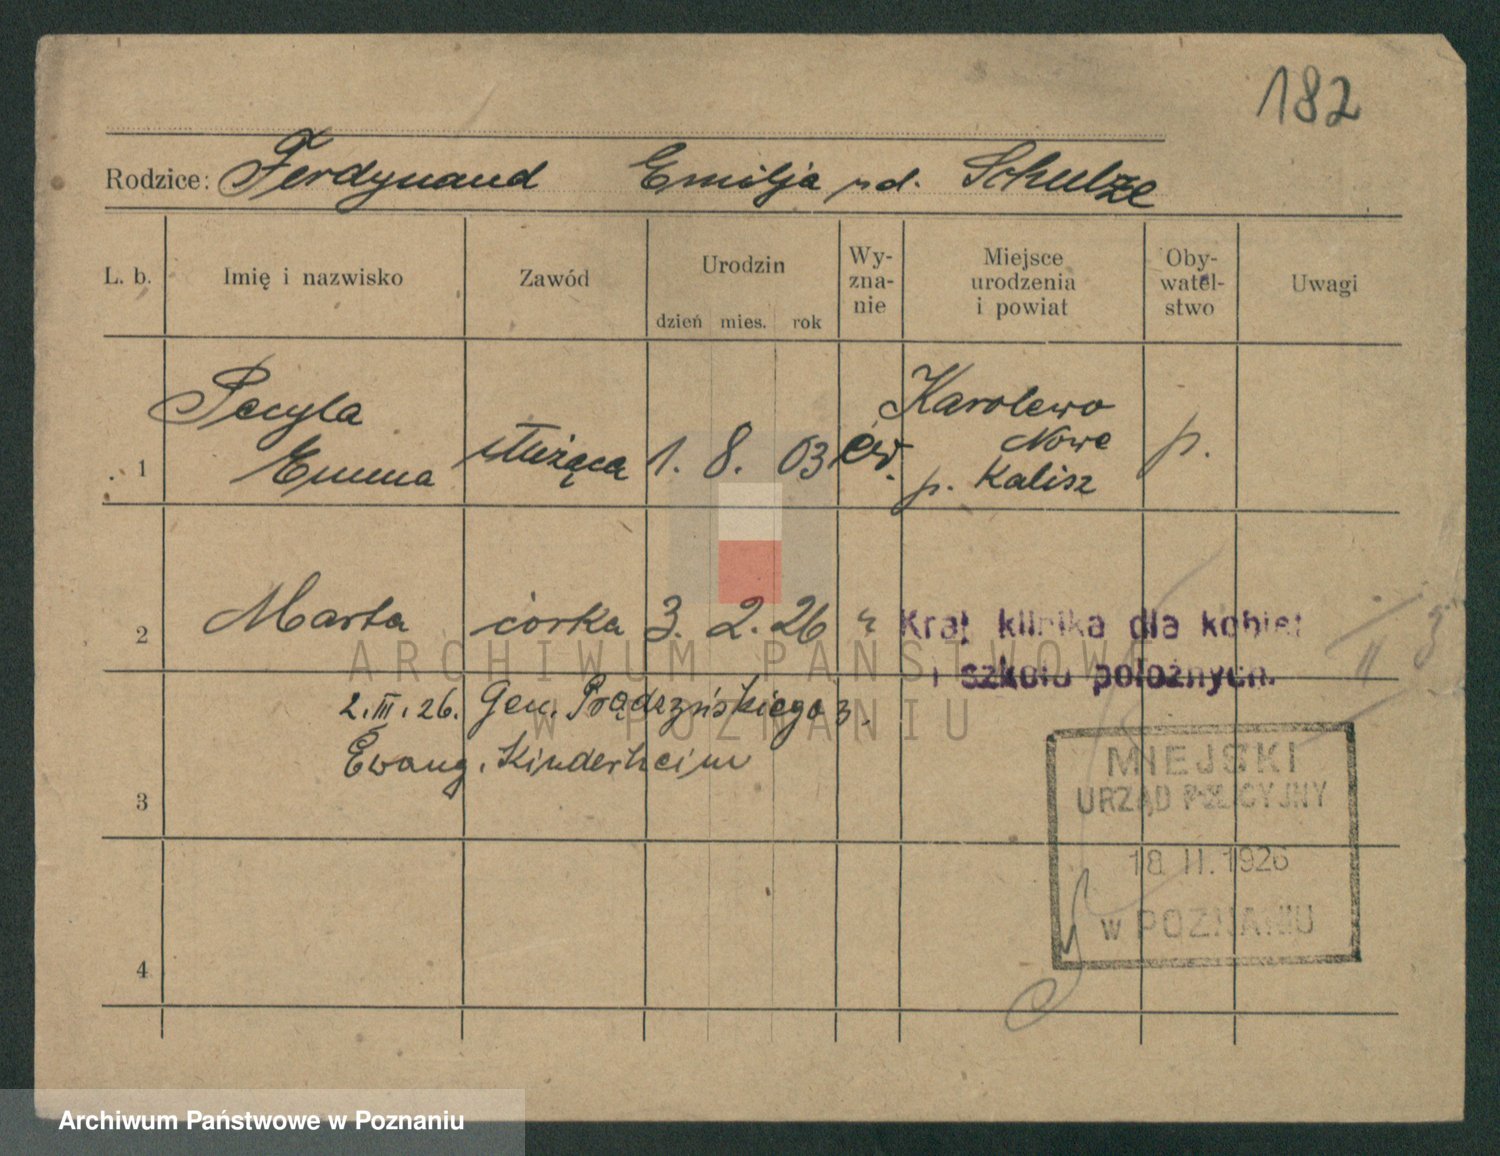 182
Rodzice: Ferdynand Emilja rd. Schulze
L. b. Imię i nazwisko Zawód Urodzin dzień mies. rok Wy-zna-nie Miejsce urodzenia i powiat Oby-watel-stwo Uwagi
1 Pecyla Emma służąca 1. 8. 03 ew. Karolewo Nowe p. Kalisz p.
2 Marta córka 3. 2. 26 " Kraj. klinika dla kobiet
i szkoła położnych.
2. III. 26. Gen. Prądzyńskiego 3.
Ewang. Kinderheim
3
MIEJSKI
URZĄD POLICYJNY
18 II. 1926
w POZNANIU
4
ARCHIWUM PAŃSTWOWE
W POZNANIU
Archiwum Państwowe w Poznaniu